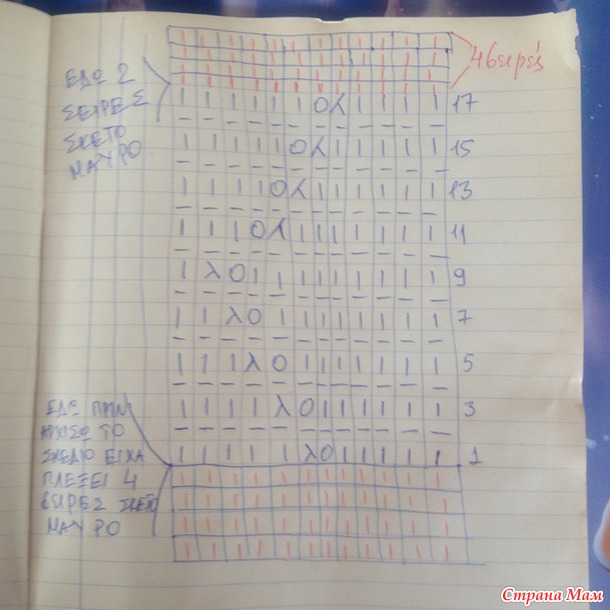 4 σειρές
ΕΔΩ 2
ΣΕΙΡΕΣ
ΣΚΕΤΟ
ΜΑΥΡΟ
17
15
13
11
9
7
5
3
1
ΕΔΩ ΠΡΙΝ
ΑΡΧΙΣΩ ΤΟ
ΣΧΕΔΙΟ ΕΙΧΑ
ΠΛΕΞΕΙ 4
ΣΕΙΡΕΣ ΣΚΕΤΟ
ΜΑΥΡΟ
Страна Мам